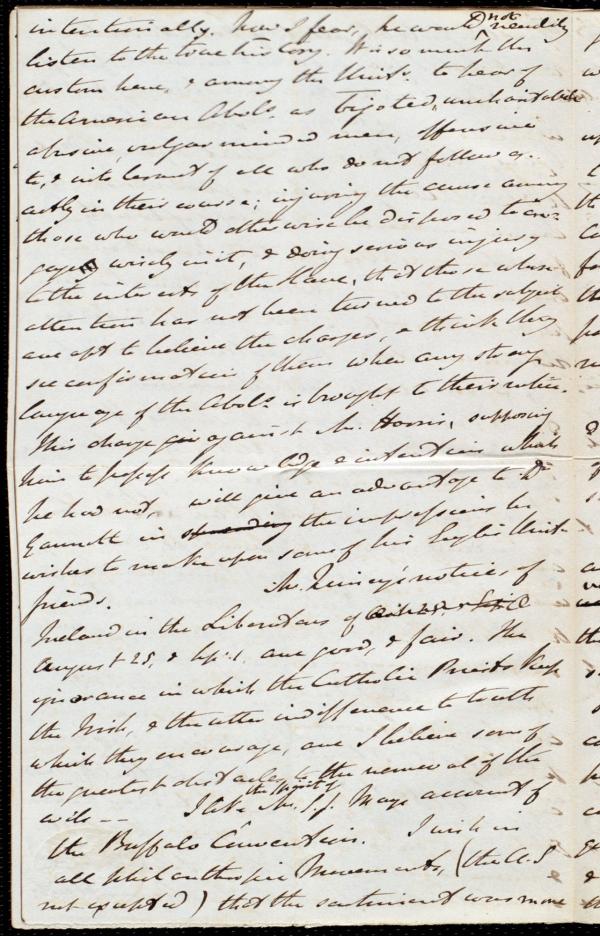 intentionally. Now I fear, he would not readily
listen to the true history. It is so much the
custom here, & among the Units. to hear of
the American Abols. as bigoted, uncharitable
abusive, vulgar minded men, offensive
to, & intolerant of all who do not follow ex-
actly in their course; injuring the cause among
those who would otherwise be disposed to en-
gage wisely in it, & doing serious injury
to the interests of the Slave, that those whose
attention has not been turned to the subject
are apt to believe the charges, & think they
see confirmation of them when any strong
language of the Abols. is brought to their notice.
This charge against Mr. Harris, supposing
him to possess knowledge & intentions which
he had not, will give an advantage to Dr.
Gannett in the impressions he
wishes to make upon some of his English Unit.
friends. Mr. Quincy's notices of
Ireland in the Liberators of
August 25, & Sept. 1. are good, & fair. The
ignorance in which the Catholic Priests keep
the Irish, & the utter indifference to truth
which they encourage, are I believe some of
the greatest obstacles to the removal of the
evils -- I like the spirit of Mr. S. J. Mays account of
the Buffalo Convention. I wish in
all philanthropic Movements, (the A. S
not excepted) that the sentiment was more